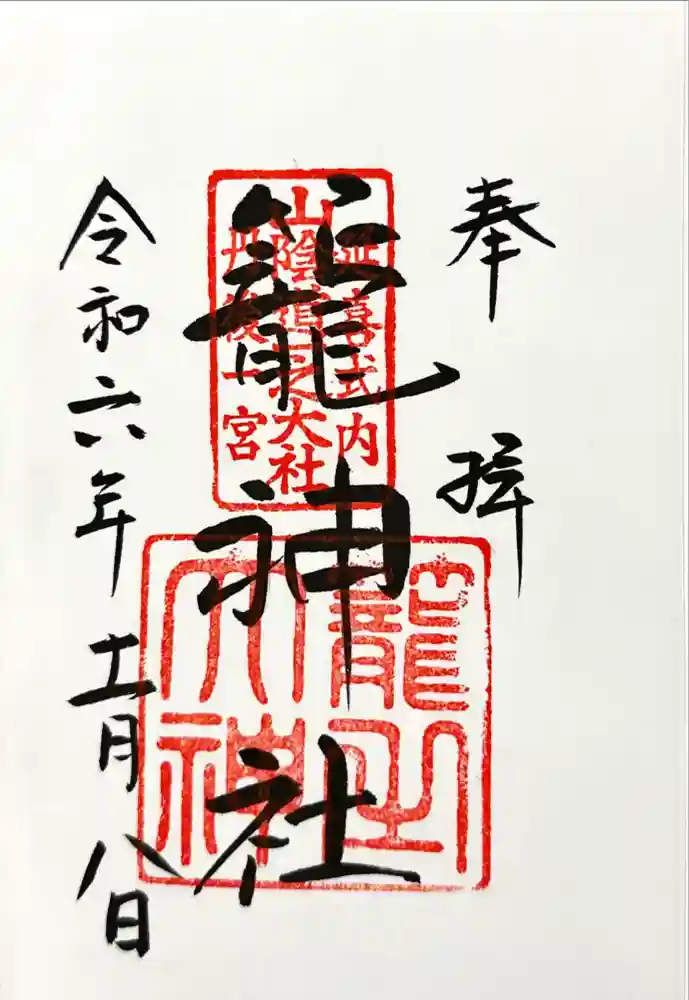 奉拝
延喜式内
山陰道一之大社
丹後一宮
籠神社
籠之大神
令和六年十一月八日